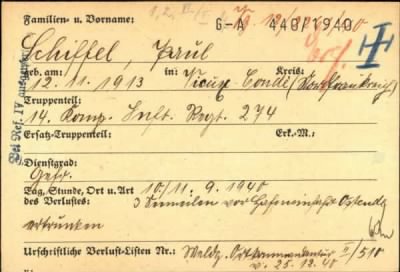 Familien- u. Vorname: G-A 448/1940
Schiffel, Paul
geb. am: in: Kreis:
12.11.1913 Condé (Nordfrankreich)
Truppenteil:
14. Komp. Inft. Regt. 274
Ersatz-Truppenteil: Erk.-M.:
Dienstgrad:
Gefr.
Tag, Stunde, Ort u. Art 10./11. 9. 1940
des Verlustes: 3 Seemeilen vor Hafeneinfahrt Ostende
ertrunken
Urschriftliche Verlust-Listen Nr.: Meldg. Ortskommandantur II/510
v. 25.12.40
Bei Ref. IV